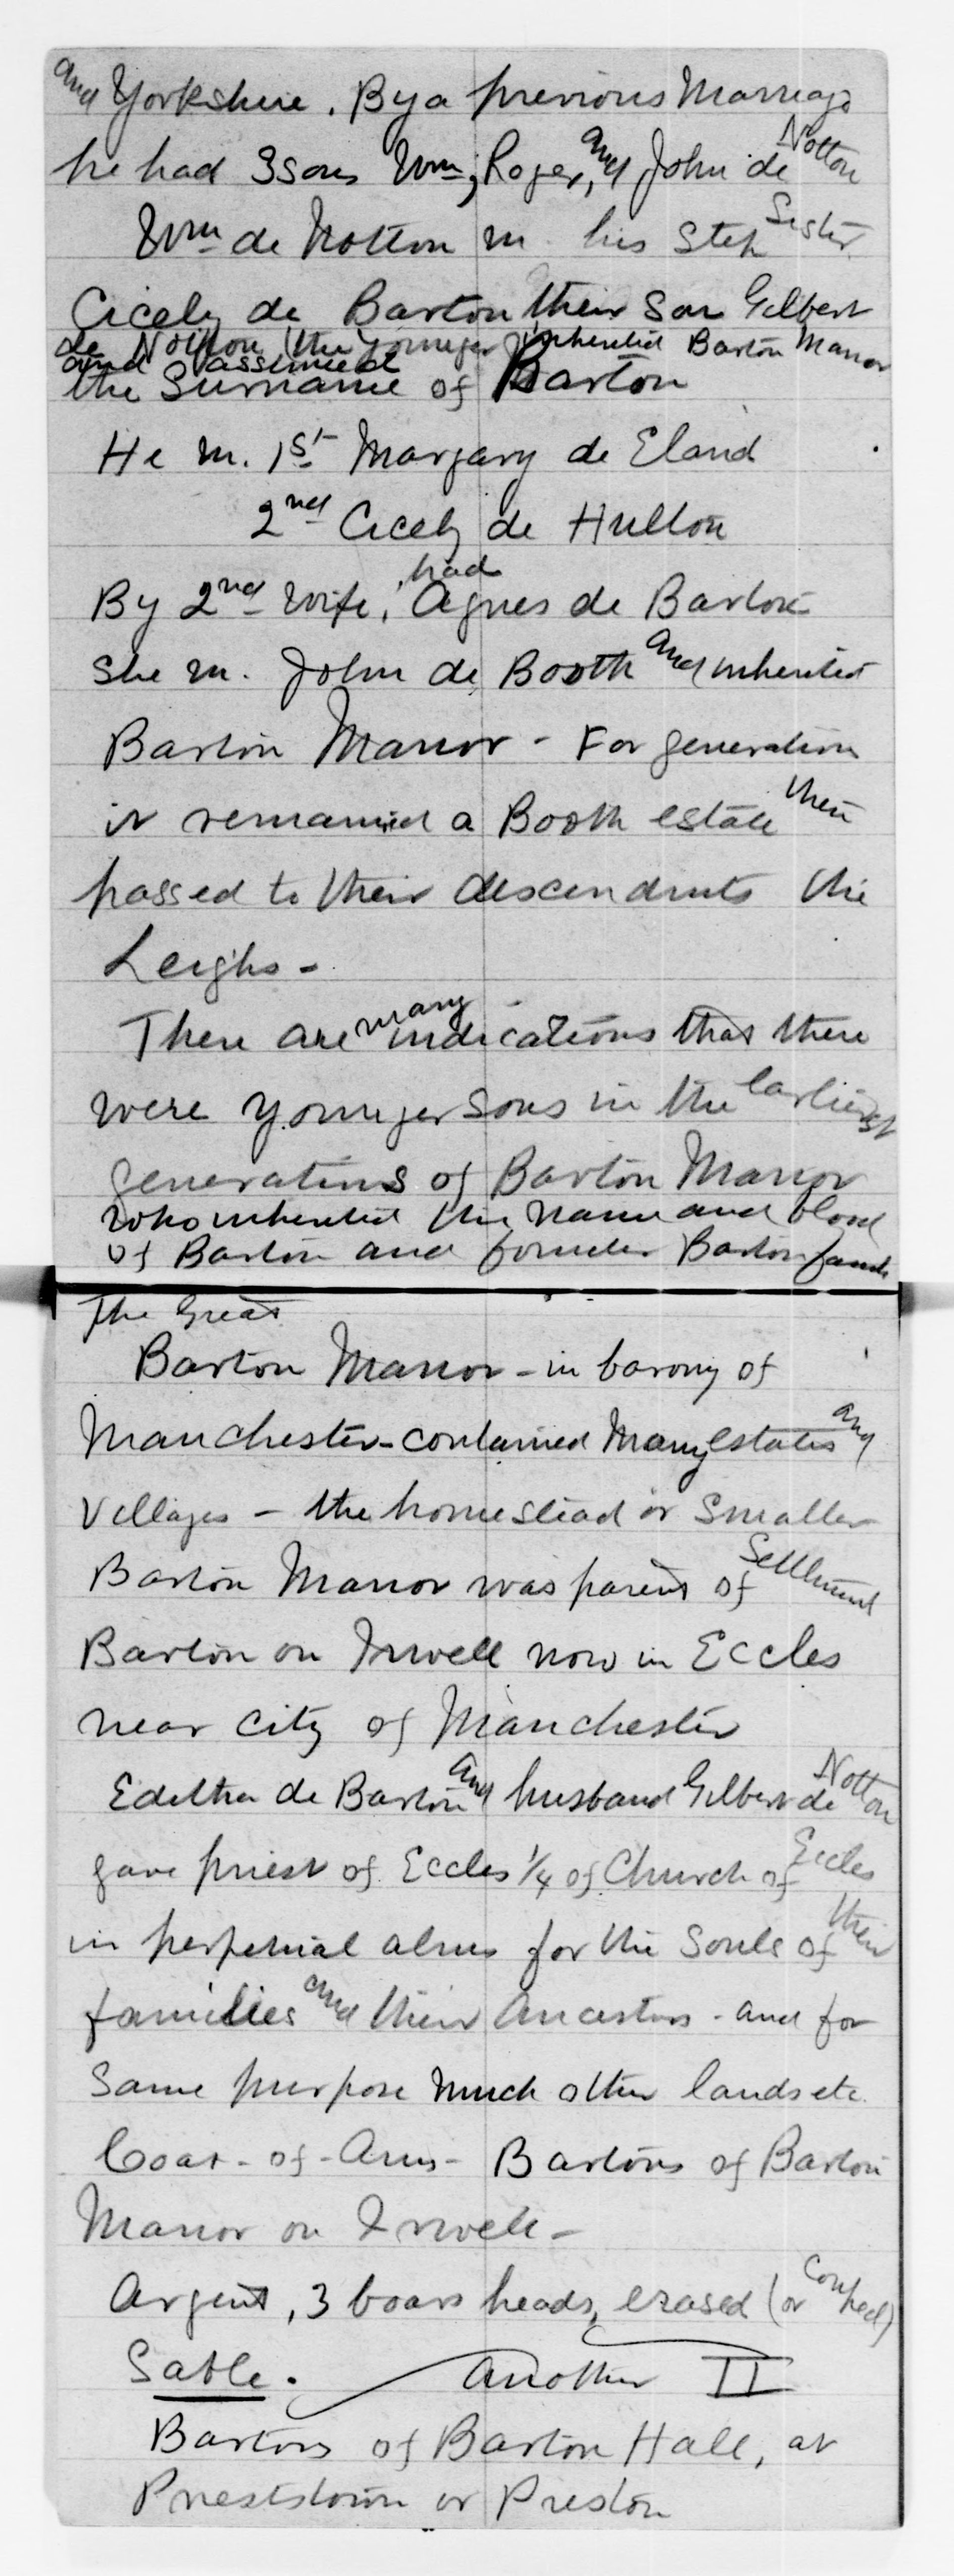 and Yorkshire. By a previous Marriage
he had 3 sons Wm, Roger, and John de Notton
Wm de Notton m. his Step Sister
Cicely de Barton their Son Gilbert
de Notton (the younger) inherited Barton Manor
and assumed
the Surname of Barton
He m. 1st Margary de Eland
2nd Cicely de Hulton
By 2nd wife, had Agnes de Barton
She m. John de Booth and inherited
Barton Manor - For generation
it remained a Booth estate then
passed to their descendants the
Leighs -
There are many indications that there
were younger sons in the earliest
generations of Barton Manor
who inherited the name and blood
of Barton and founded Barton
The Great
Barton Manor - in barony of
Manchester - contained Many estates and
Villages - the homestead or Smaller
Barton Manor was parent of Settlement
Barton on Irwell now in Eccles
near city of Manchester
Edeltha de Barton and husband Gilbert de Notton
gave priest of Eccles 1/4 of Church of Eccles
in perpetual alms for the Souls of their
families and their Ancestors - and for
Same purpose Much other lands etc.
Coat - of - Arms - Bartons of Barton
Manor on Irwell -
Argent, 3 boars heads, erased (or Couped)
Sable. Another II
Bartons of Barton Hall, at
Prieststown or Preston